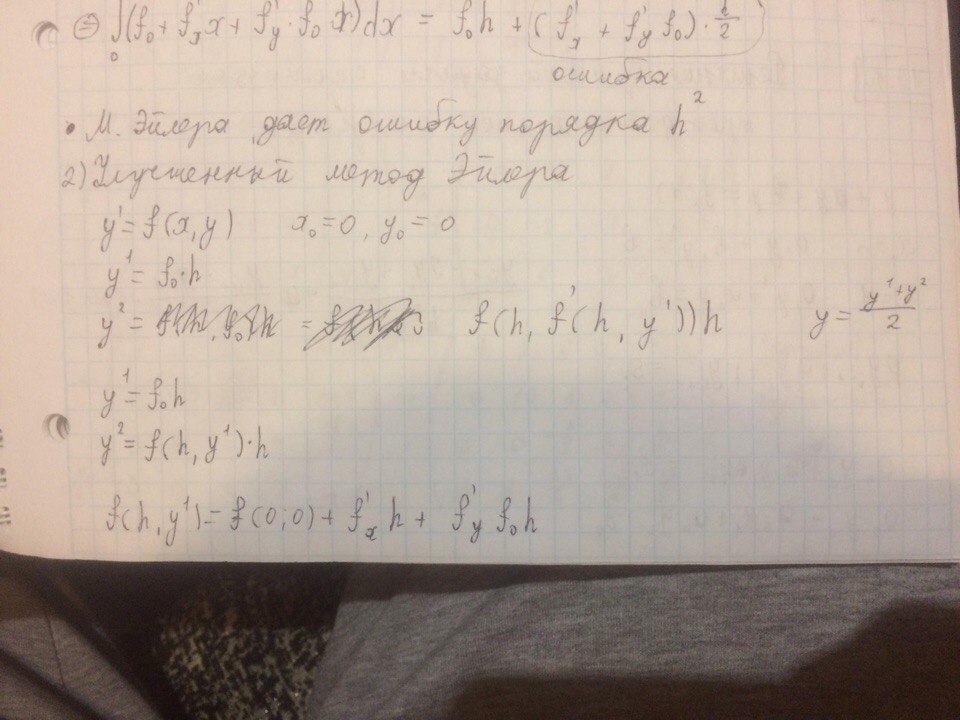 ⊜ ∫₀(f₀ + f'ₓ x + f'ᵧ · f₀ x)dx = f₀h + (f'ₓ + f'ᵧ f₀) · /2
ошибка
• М. Эйлера дает ошибку порядка h²
2) Улучшенный метод Эйлера
y' = f(x, y) x₀ = 0, y₀ = 0
y¹ = f₀·h
y² = f(h, f'(h, y'))h y = (y¹+y²)/2
y¹ = f₀h
y² = f(h, y¹)·h
f(h, y¹) = f(0; 0) + f'ₓ h + f'ᵧ f₀h